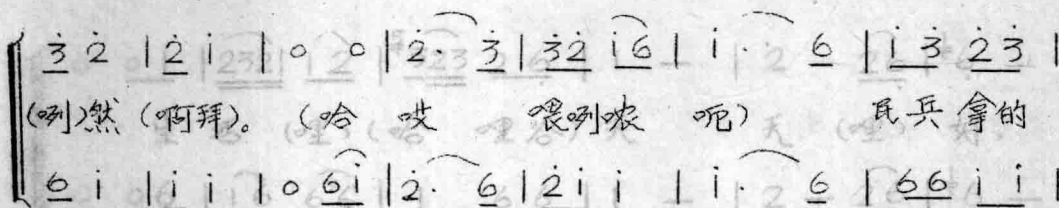 3̇ 2̇ | 2̇ i | 0 0 | 2̇· 3̇ | 3̇2̇ i6 | i· 6 | i 3̇ 2̇3̇ |
(咧)然(啊拜)。(哈 哎 喂咧哝 呃) 民兵拿的
6 i | i i | 0 6i | 2̇· 6 | 2̇ i i | i· 6 | 66 i i |